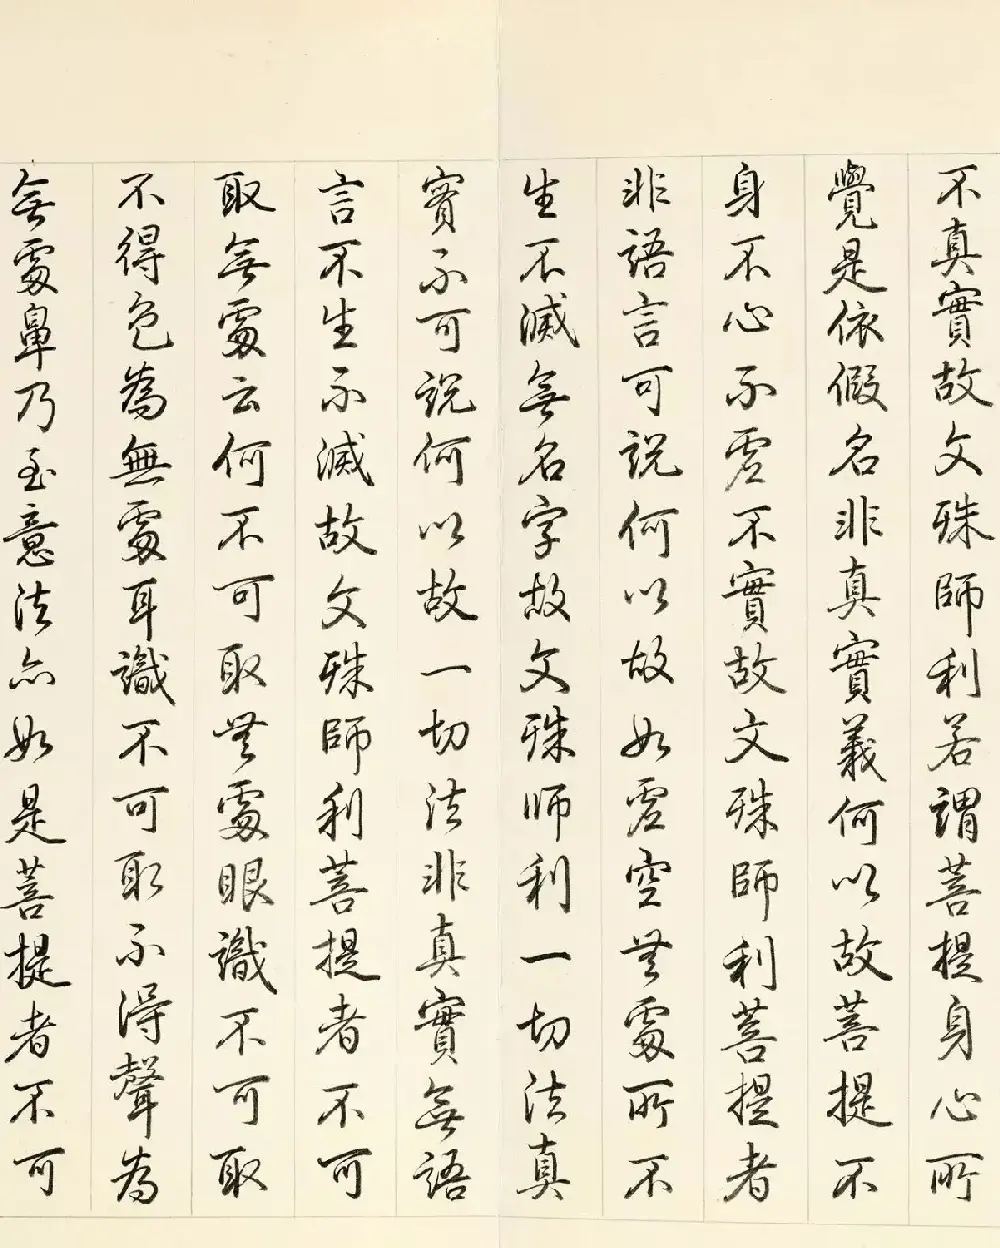 不真實故文殊師利若謂菩提身心所
覺是依假名非真實義何以故菩提不
身不心不虛不實故文殊師利菩提者
非語言可說何以故如虛空無處所不
生不滅無名字故文殊师利一切法真
實不可說何以故一切法非真實無語
言不生不滅故文殊師利菩提者不可
取無處云何不可取無處眼識不可取
不得色為無處耳識不可取不得聲為
無處鼻乃至意法亦如是菩提者不可